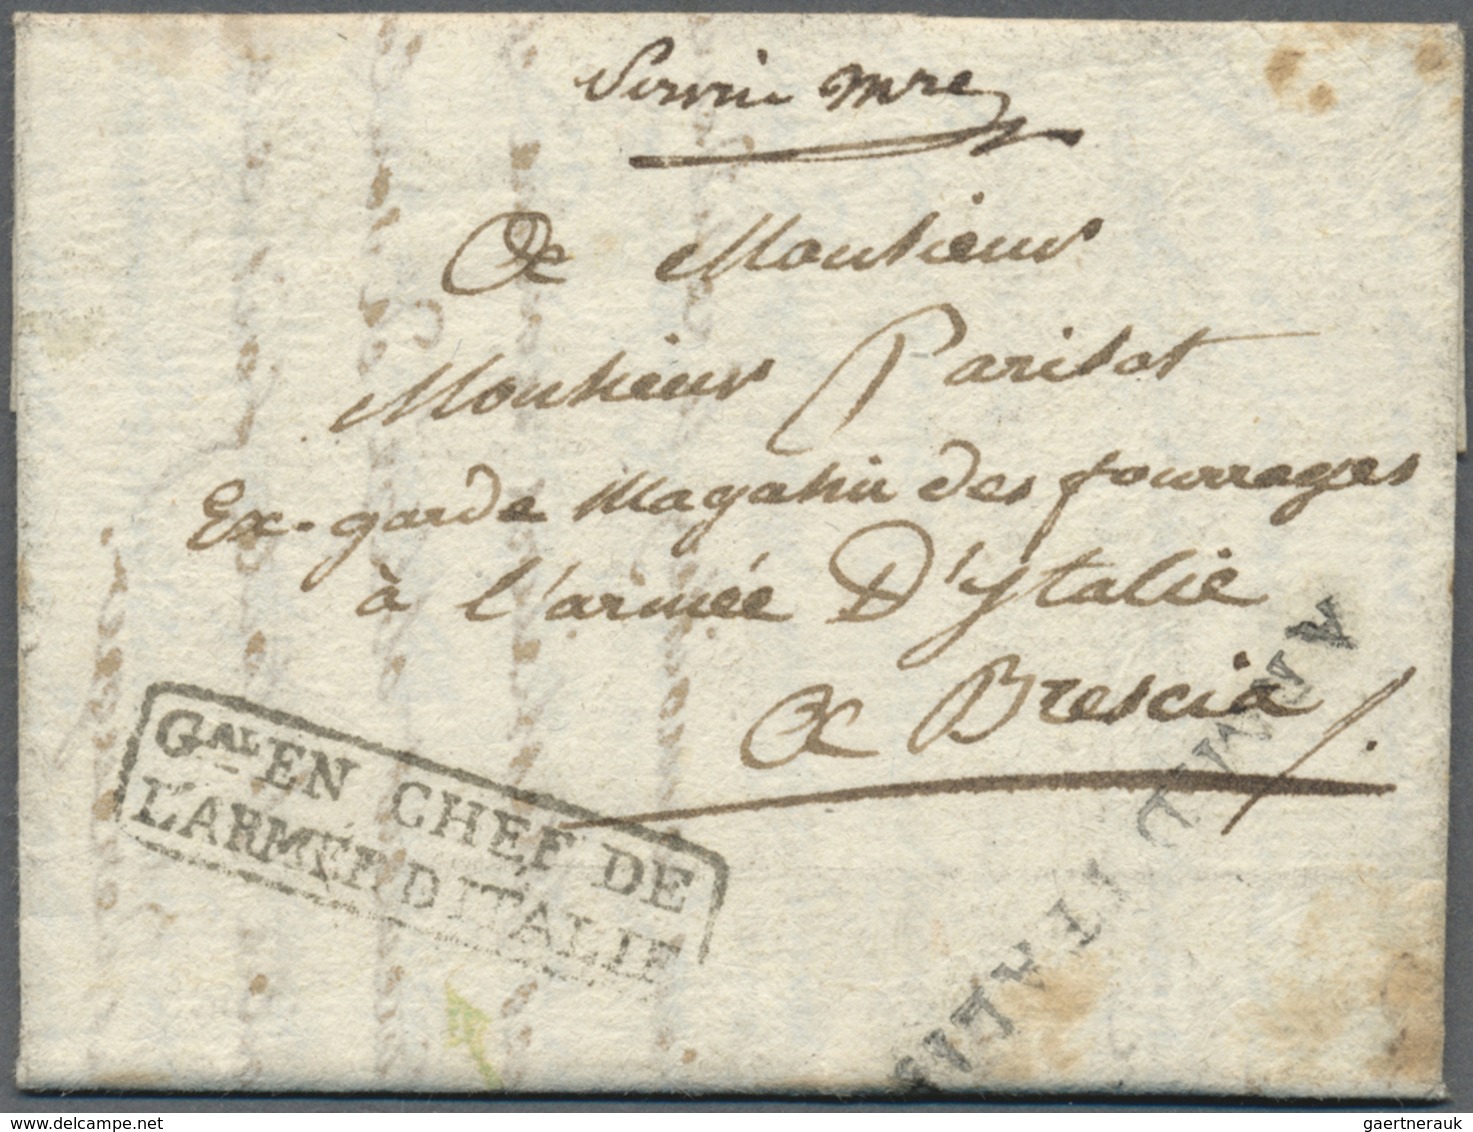 Servi mre
A Monsieur
Monsieur Parisot
Ex-garde Magasin des fourrages
à l'armée D'Ytalie
A Brescia
GAL EN CHEF DE
L'ARMÉE D'ITALIE
ARM. D'ITALIE
gaertnerauk